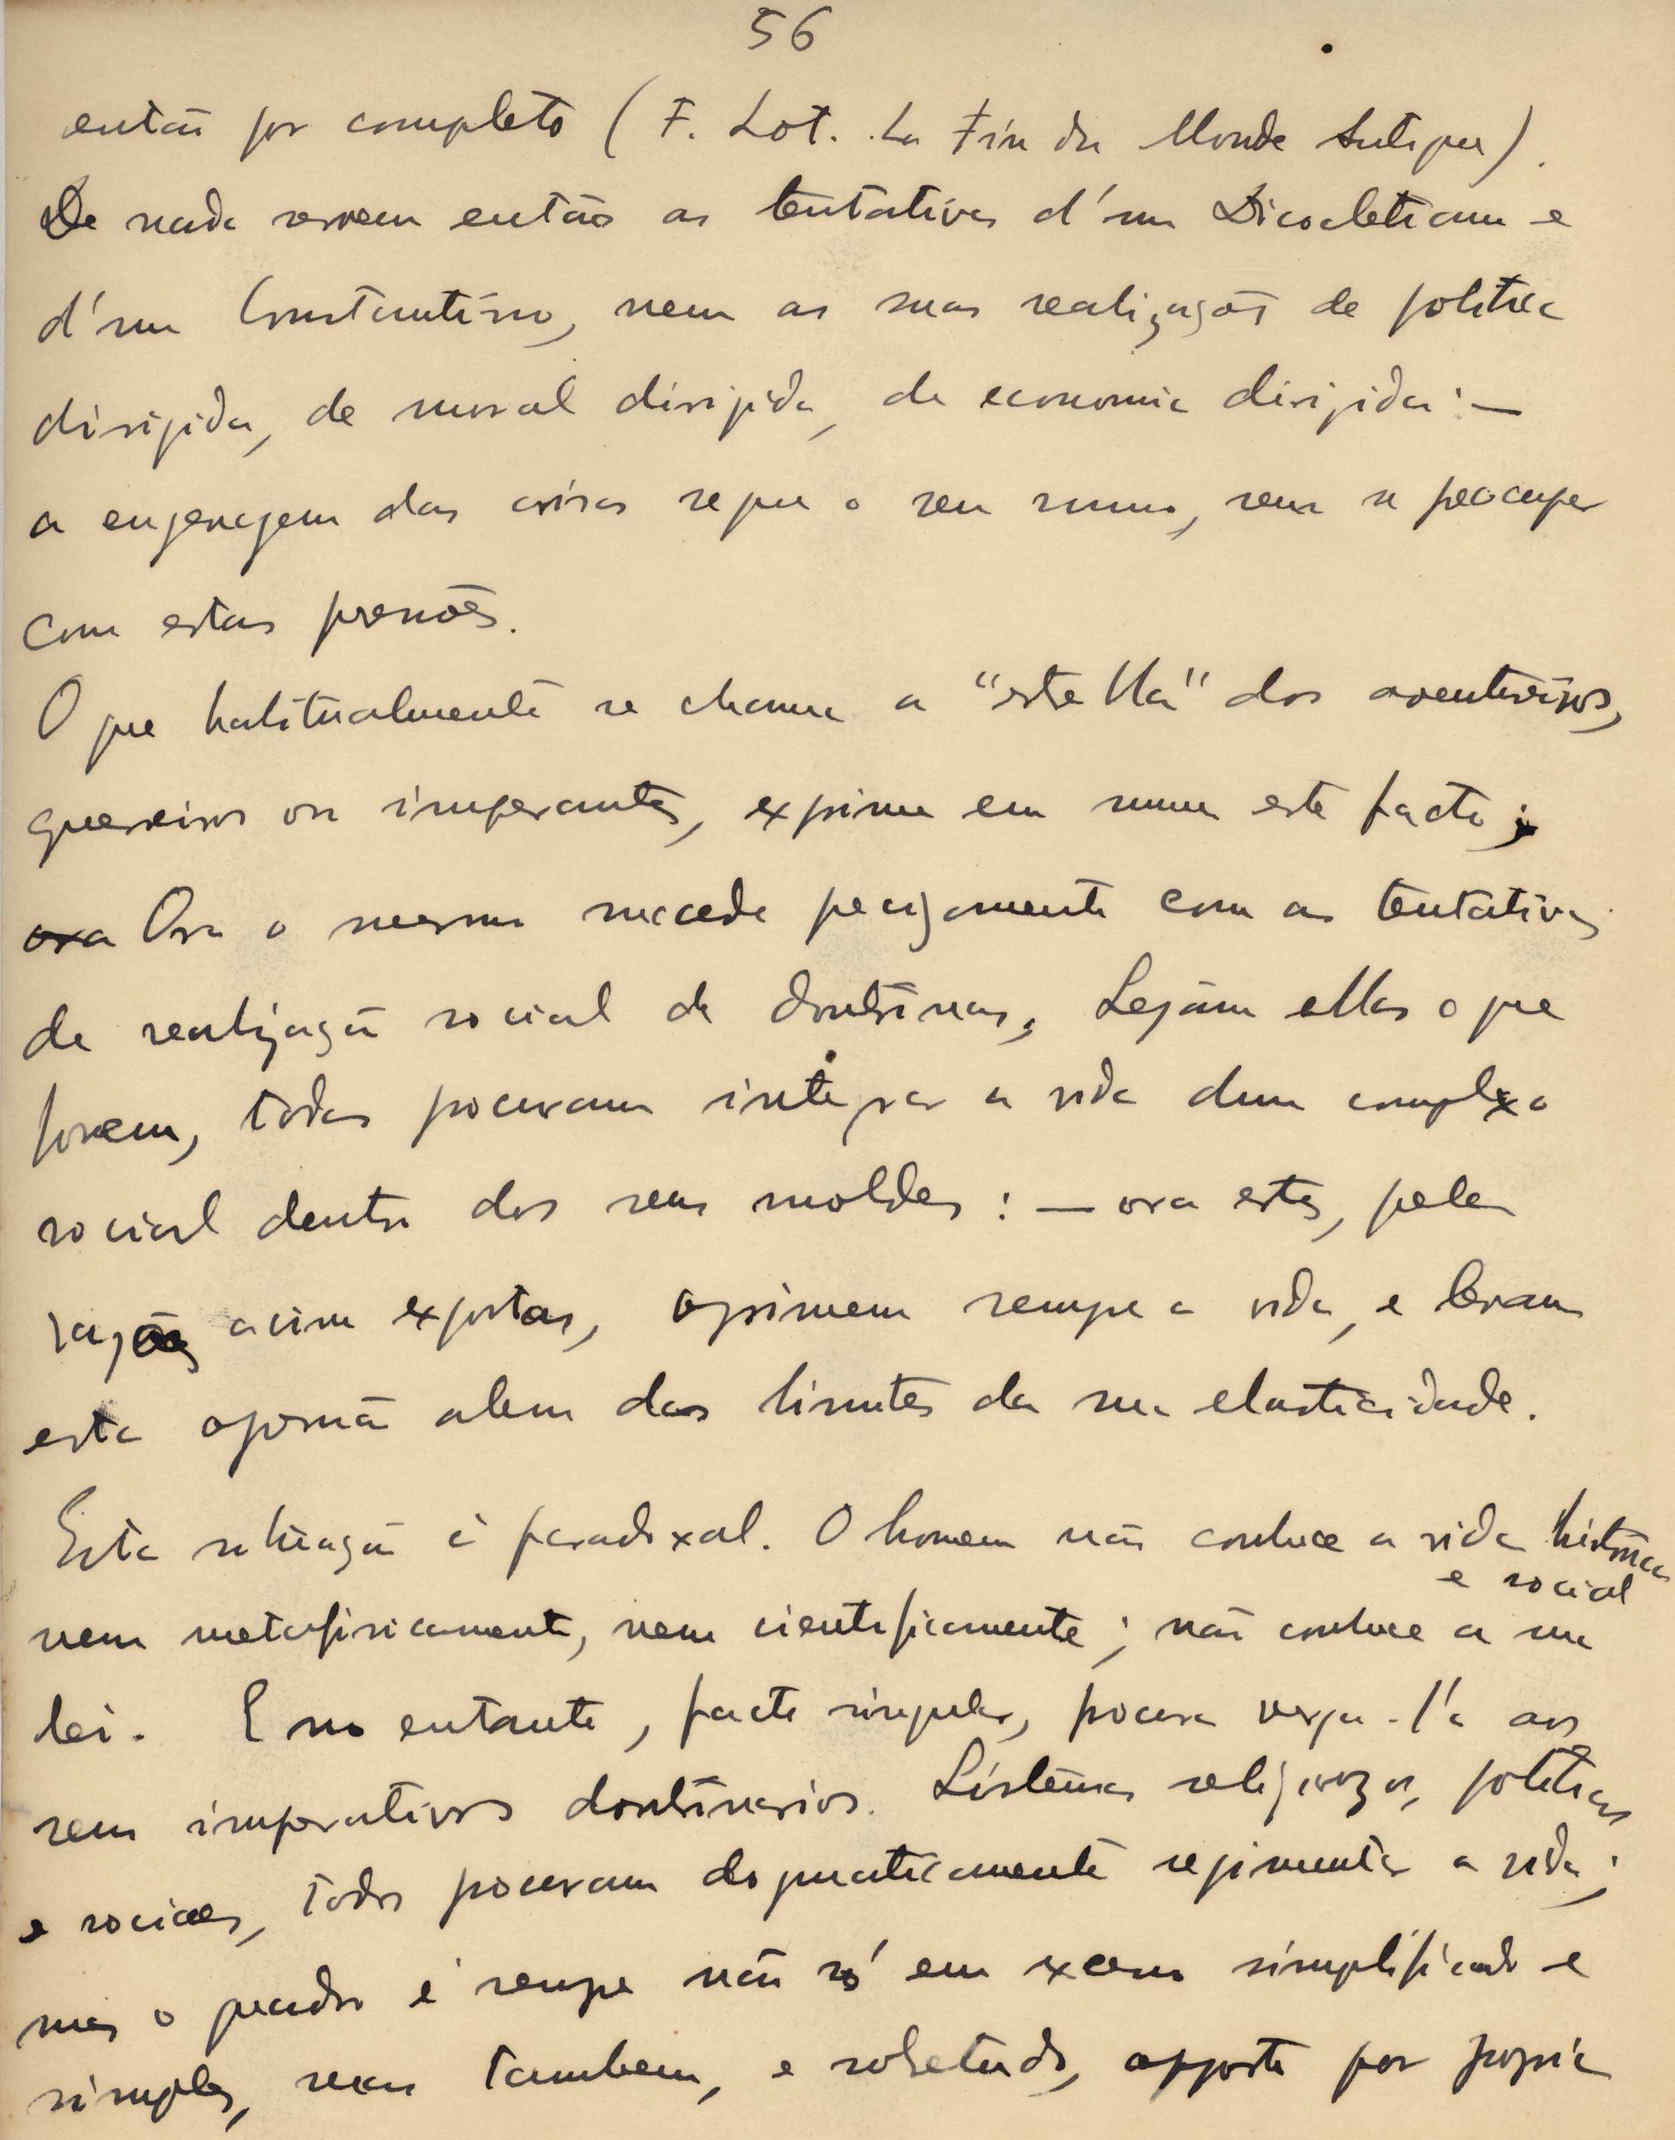 56
então por completo (F. Lot. La Fin du Monde Antique).
De nada servem então as tentativas d'um Diocletiano e
d'um Constantino, nem as suas realizações de politica
dirigida, de moral dirigida, de economia dirigida: —
a engrenagem das coisas segue o seu rumo, sem se preocupar
com estas pressões.
O que habitualmente se chama a "estrella" dos aventureiros,
guerreiros ou imperantes, exprime em suma este facto;
ora Ora o mesmo sucede precisamente com as tentativas
de realização social de doutrinas. Sejam ellas o que
forem, todas procuram integrar a vida dum complexo
social dentro dos seus moldes: — ora estes, pelas
razões acima expostas, oprimem sempre a vida, e levam
esta opressão alem dos limites da sua elasticidade.
Esta situação é paradoxal. O homem não conhece a vida historica
e social
nem metafisicamente, nem cientificamente; não conhece a sua
lei. E no entanto, facto singular, procura vergá-la aos
seus imperativos doutrinarios. Sistemas religiosos, politicos
e sociaes, todos procuram dogmaticamente regimentar a vida;
mas o quadro é sempre não só em extremo simplificado e
simples, mas tambem, e sobretudo, opposto por propria